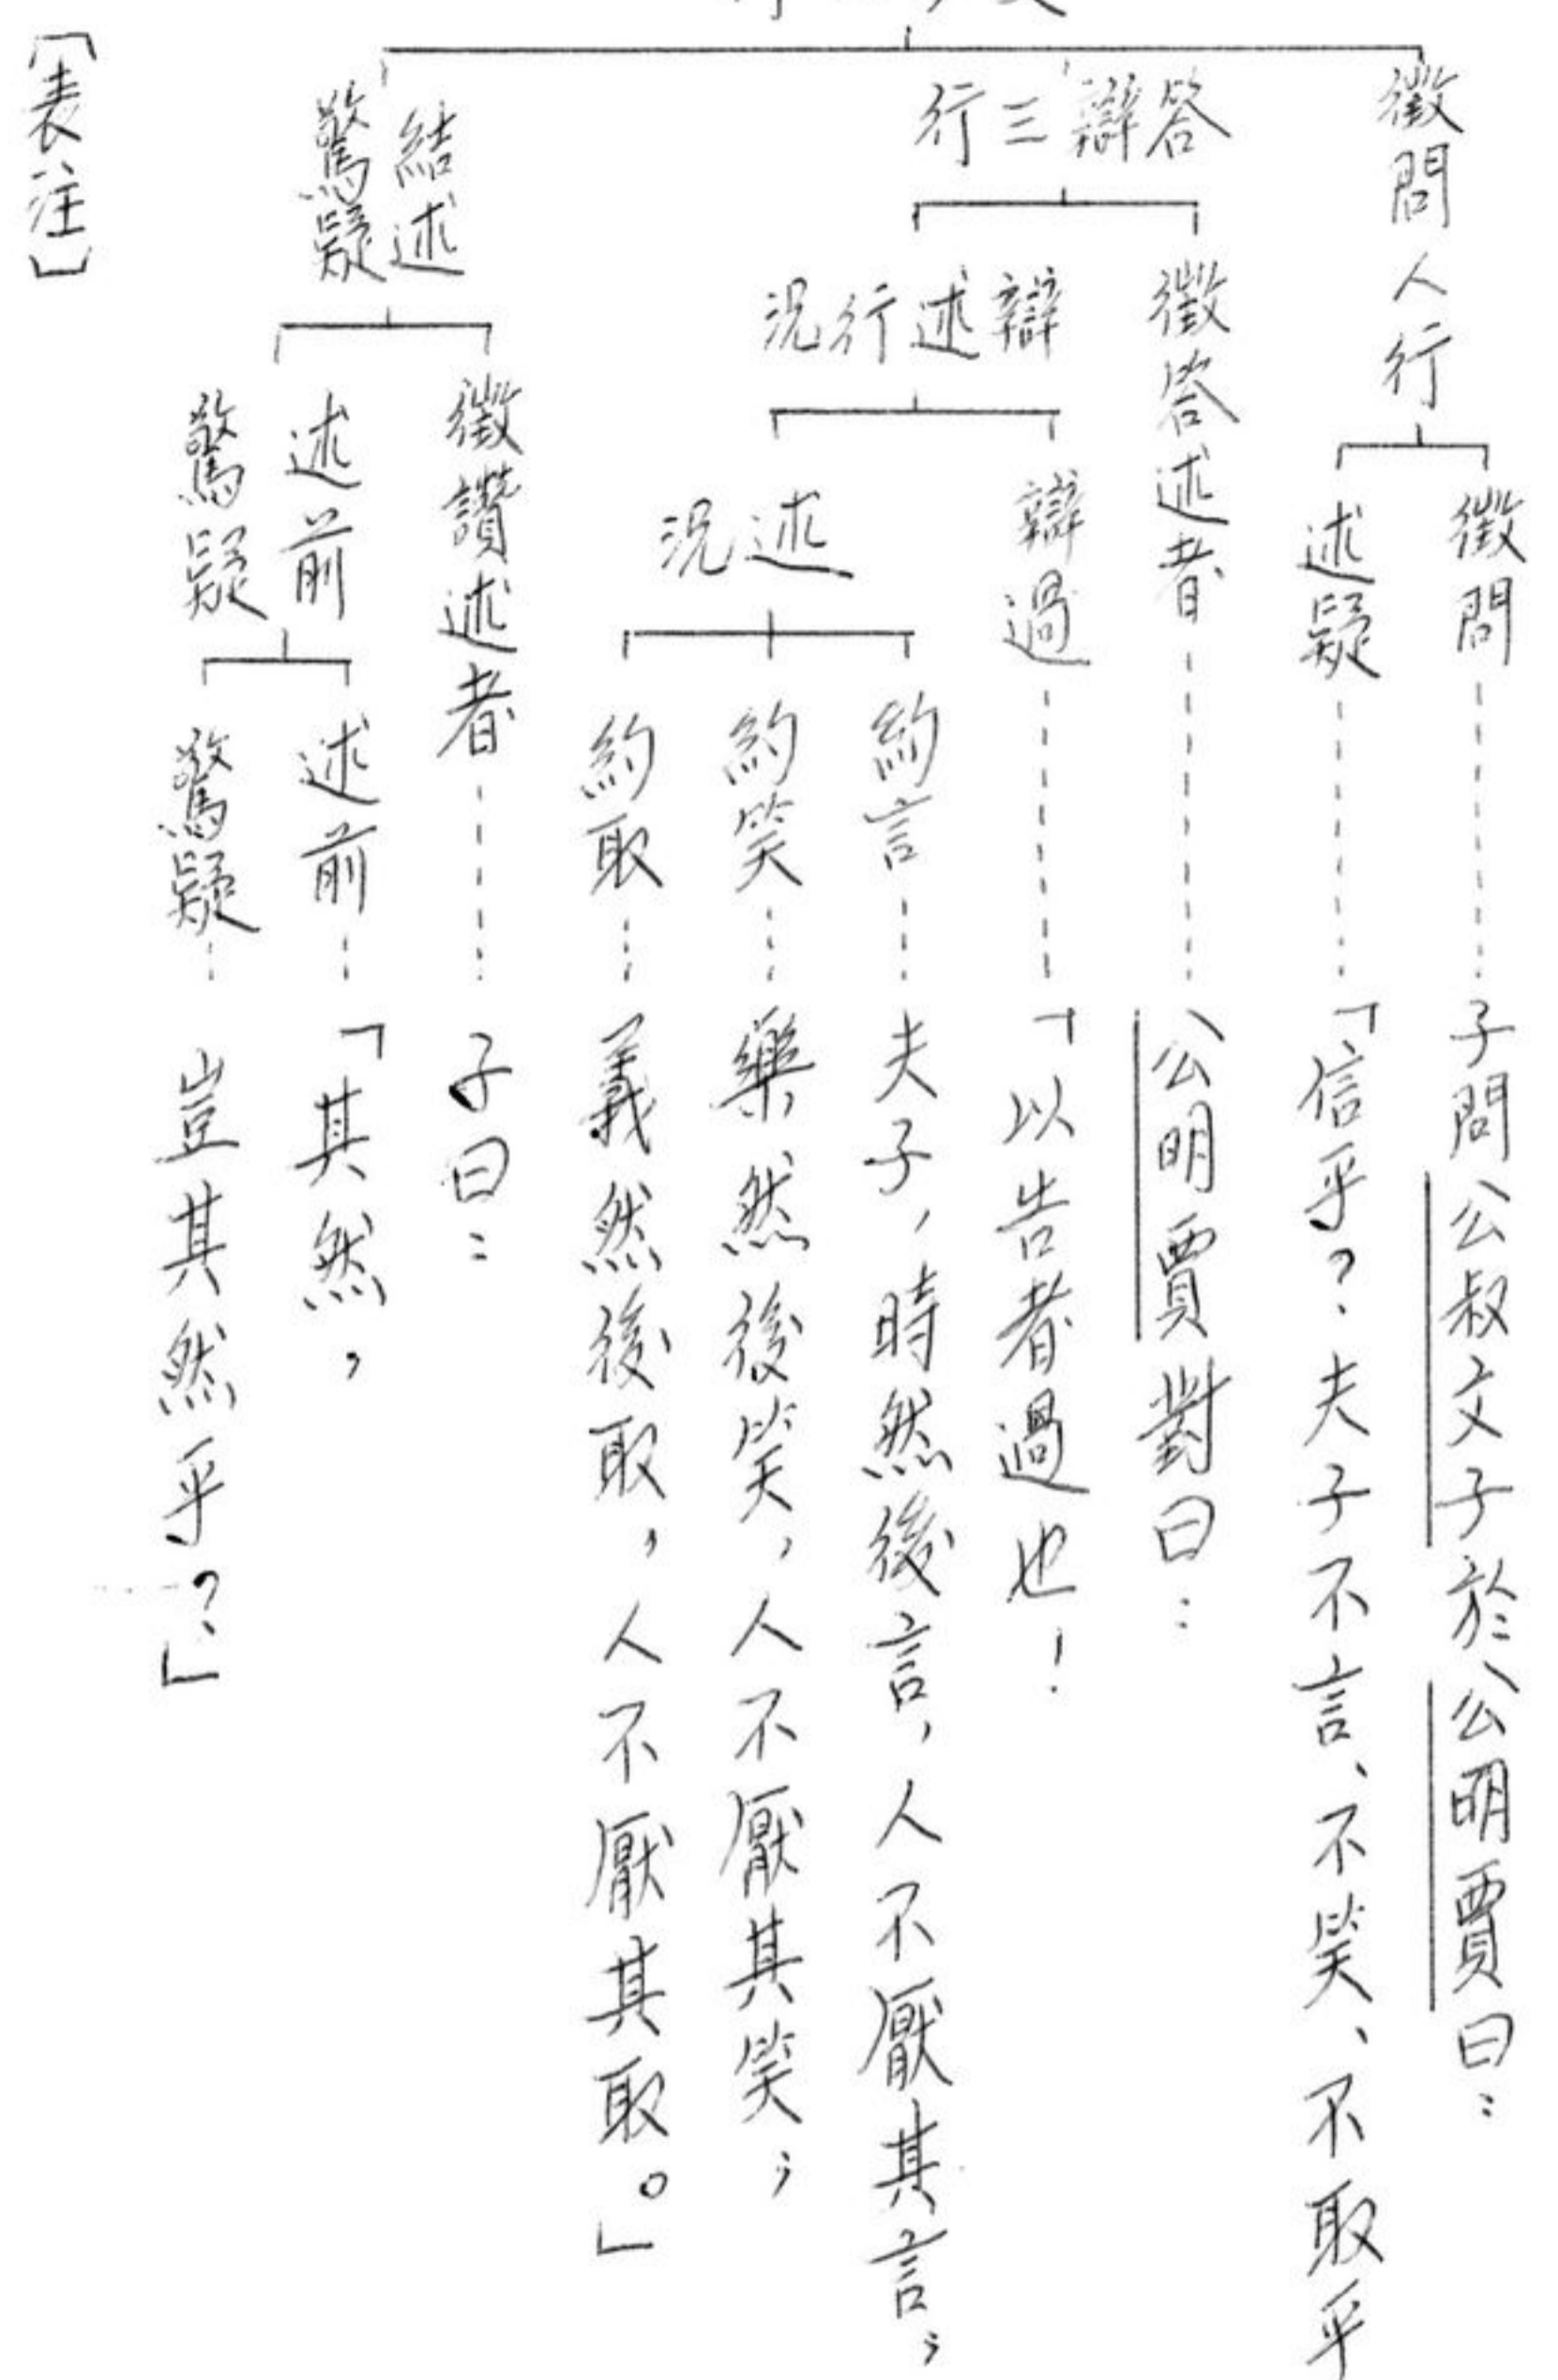 徵問人行
徵問
子問公叔文子於公明賈曰：
述疑
「信乎？夫子不言、不笑、不取乎
答辯三行
徵答述者
公明賈對曰：
辯述行況
辯過
「以告者過也！
述況
約言
夫子，時然後言，人不厭其言；
約笑
樂然後笑，人不厭其笑；
約取
義然後取，人不厭其取。」
結述
驚疑
徵讚述者
子曰：
述前
驚疑
述前
「其然，
驚疑
豈其然乎？」
［表注］